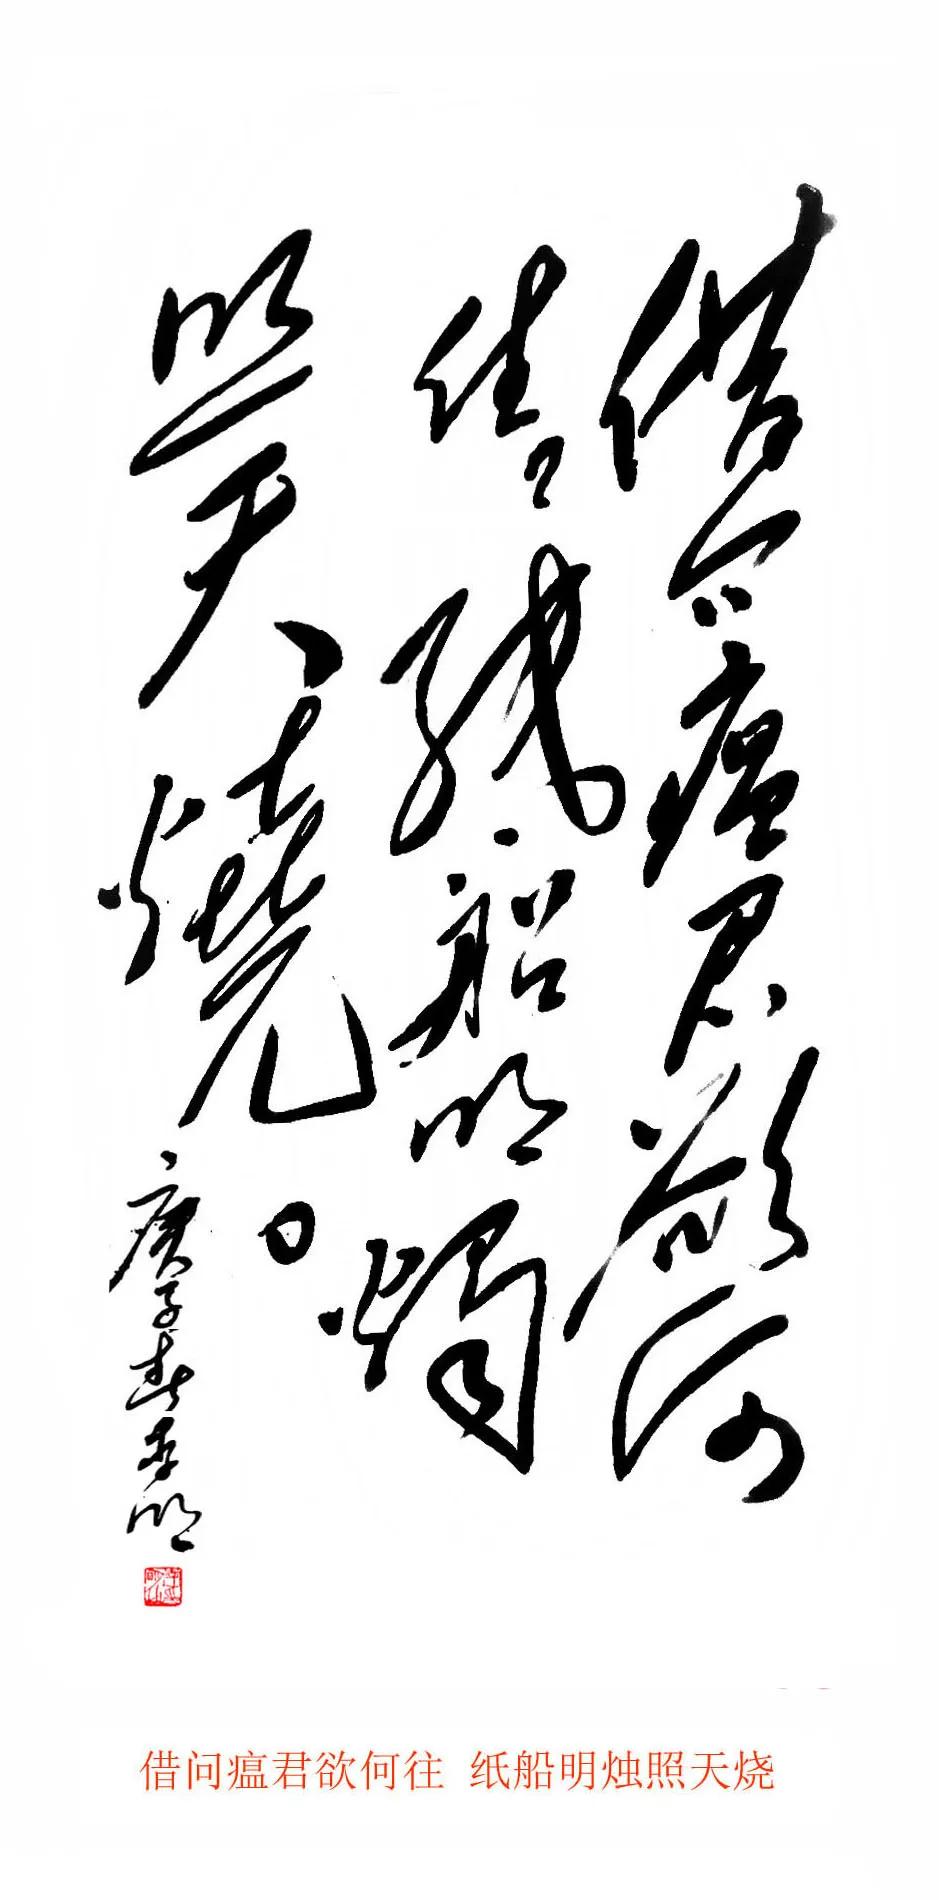 借问瘟君欲何
往纸船明燭
照天燒。
庚子春
借问瘟君欲何往 纸船明烛照天烧